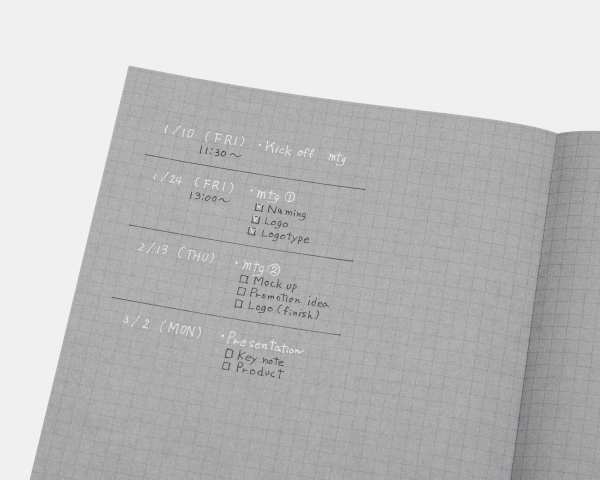 1/10 (FRI) ・Kick off mtg
11:30〜
1/24 (FRI) ・mtg ①
13:00〜
☑ Naming
☑ Logo
☑ Logotype
2/13 (THU) ・mtg ②
☐ Mock up
☐ Promotion idea
☐ Logo (finish)
3/2 (MON) ・Presentation
☐ Key note
☐ Product